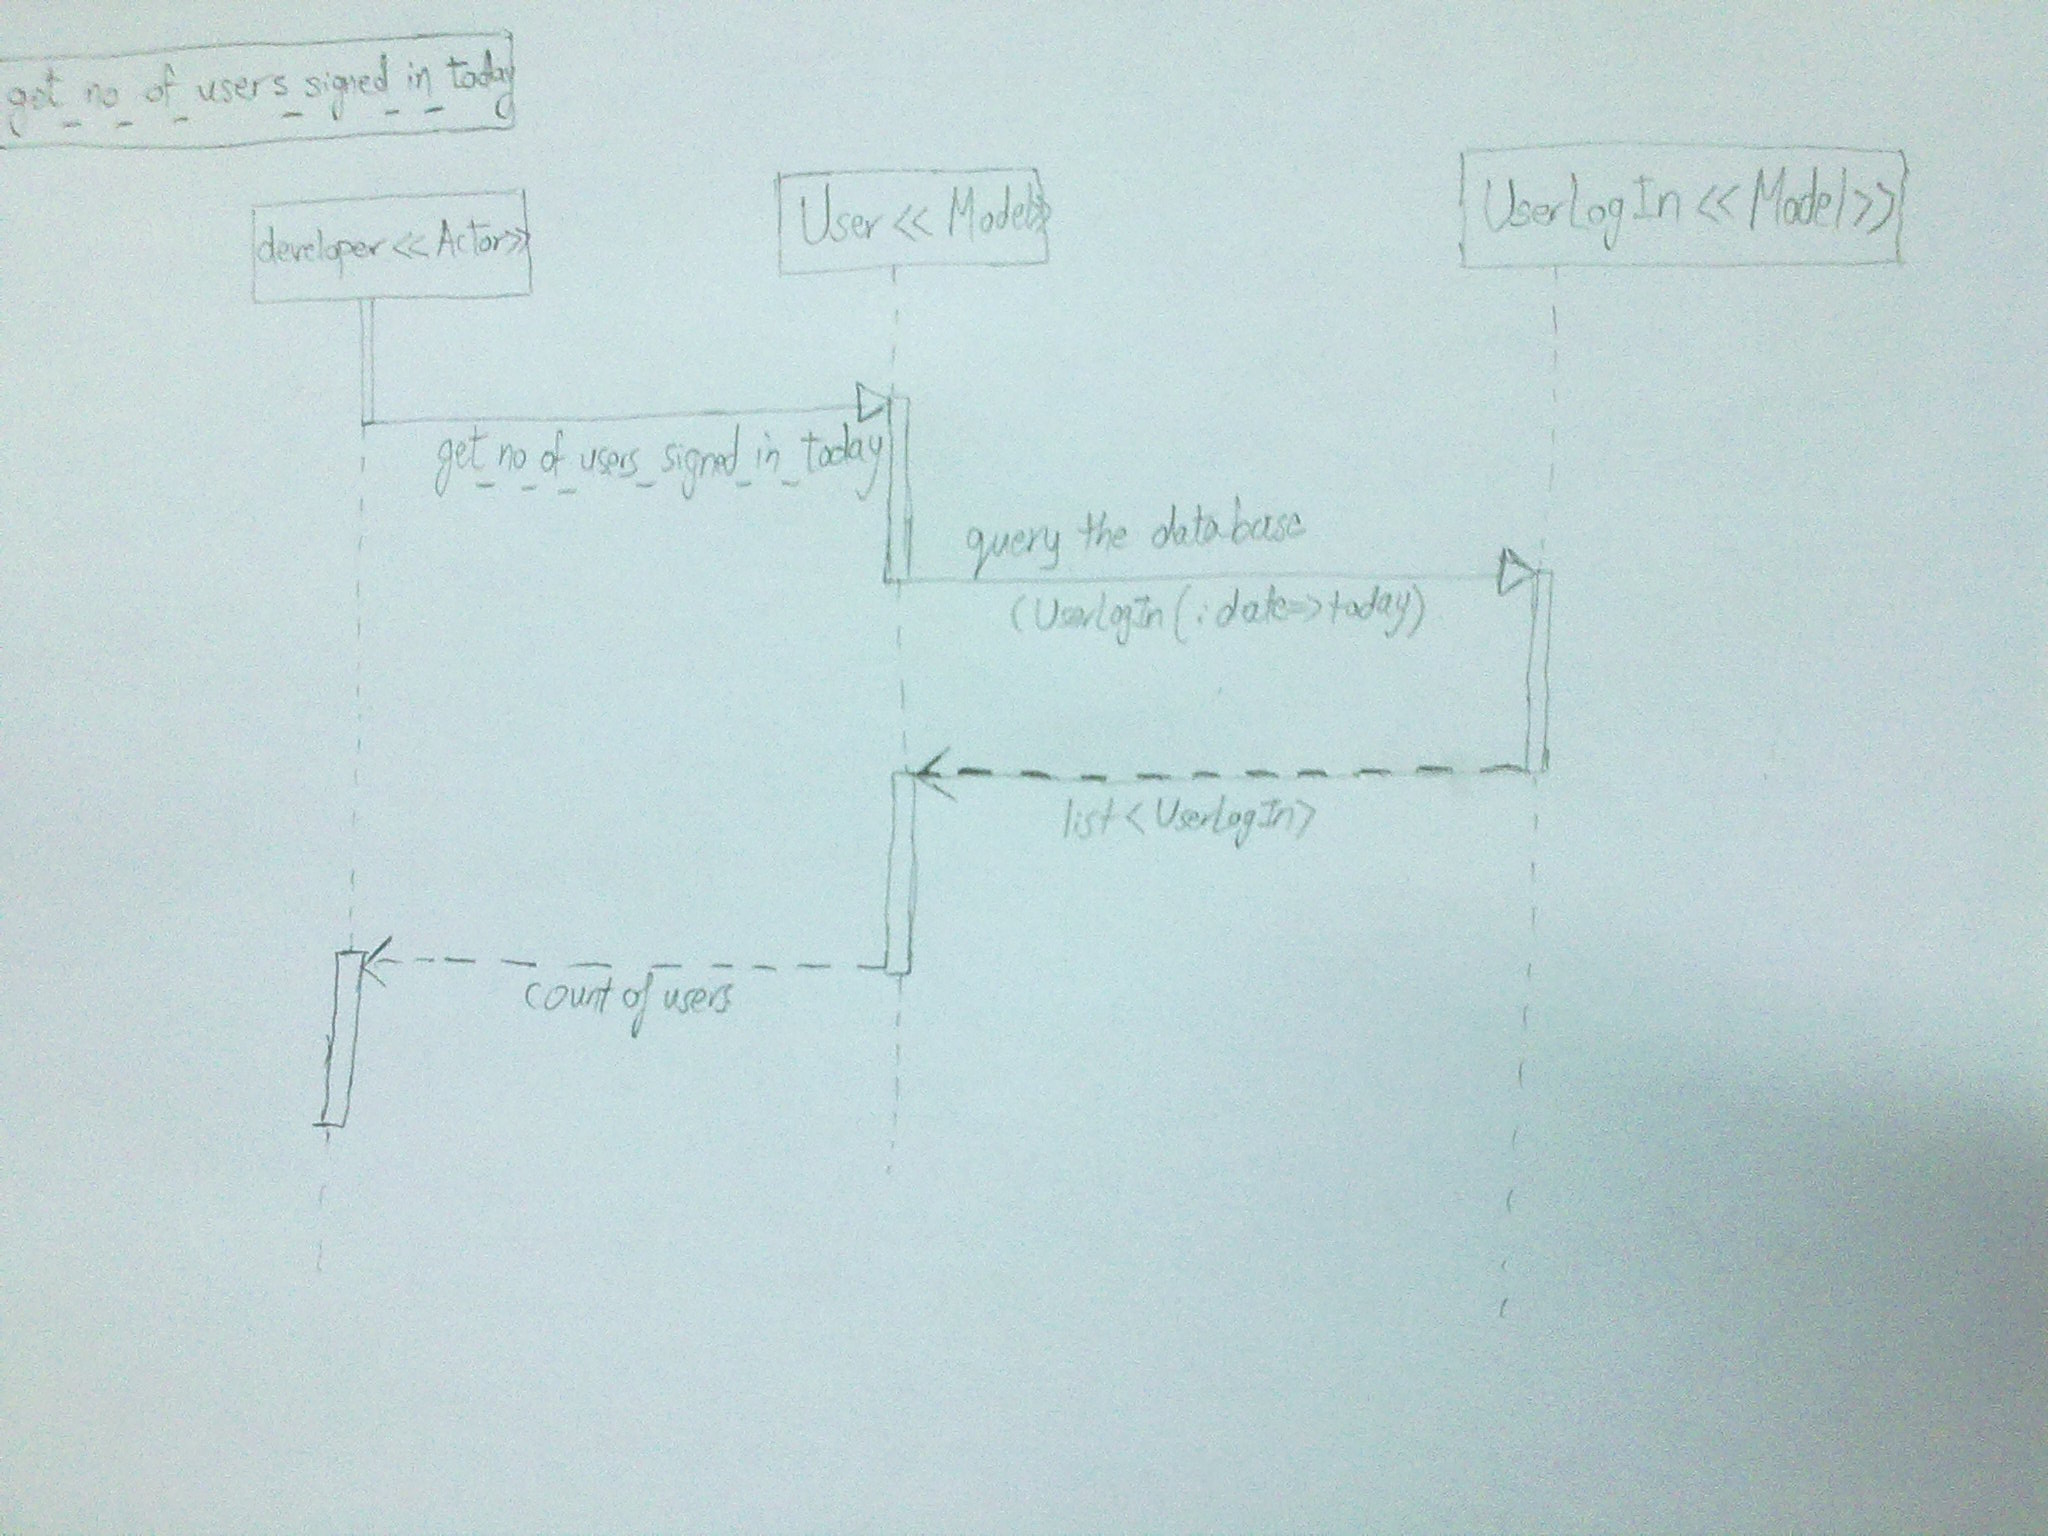 get_no_of_users_signed_in_today
developer<<Actor>>
User<<Model>>
UserLogIn<<Model>>
get_no_of_users_signed_in_today
query the database
(UserLogIn(:date=>today)
list<UserLogIn>
count of users